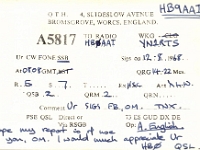 HB9AAI
O T H : 4, SLIDESLOW AVENUE
BROMSGROVE, WORCS, ENGLAND.
A5817 TO RADIO HB0AAI WKG YN1RTS
Ur CW FONE SSB Sign on 12/8/1968.
At 0808 GMT QRG 14 Mcs.
R 5 S 7
QSB 2 QRM 2
Comment Ur SIGS FB, OM. TNX.
PSE QSL Direct or Via RSGB 73 ES GUD DX DE
Op A. English
my report is of use
you, OM. I would much appreciate Ur
HB0 QSL